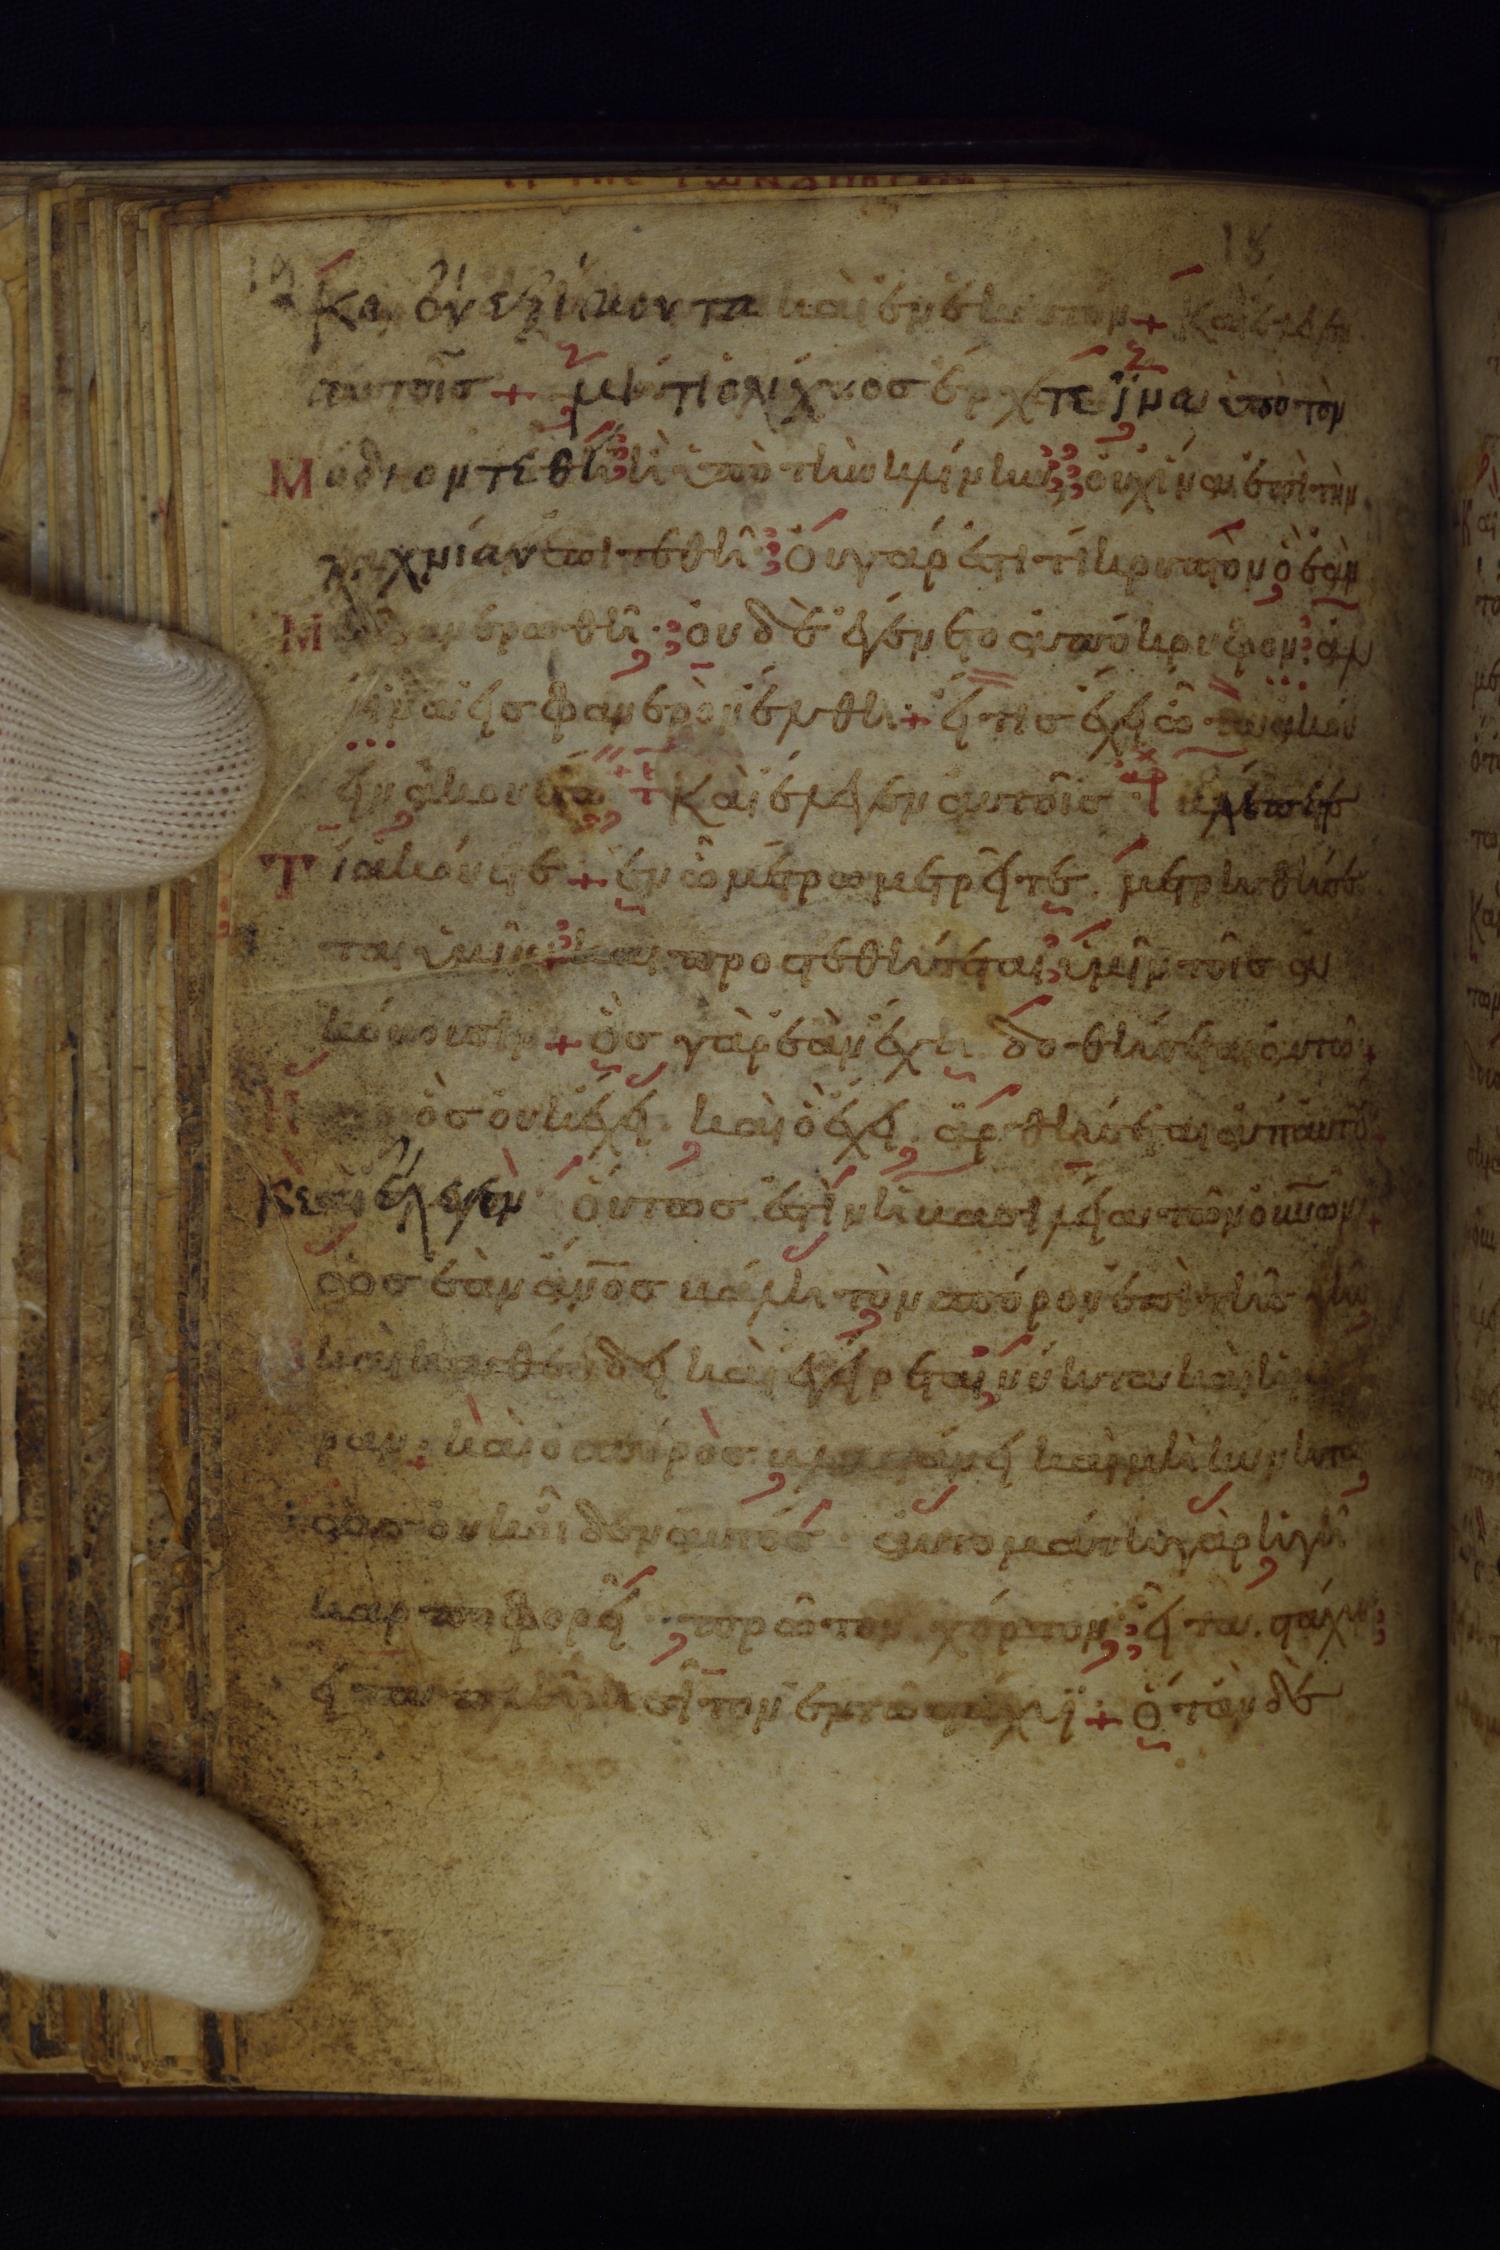 Και ὂν ἑξίκοντα καὶ ἓν ἑκατόν + Καὶ ἔλεγεν
αυτοῖσ + μήτι ὁ λύχνοσ ἔρχετε ἵνα ὑπὸ τὸν
Μόδιον τεθῆ ἢ ὑπὸ τὴν κλίνην οὐχ ἵνα ἐπὶ τὴν
λυχνίαν ἐπιτεθῆ Ὀυ γάρ ἐστι τί κρυπτὸν ὃ ἐὰν
Μὴ φανερωθῆ ὀυδὲ ἐγένετο ἀπόκρυφον ἀλ
λ' ἵνα εἰσ φανερὸν ἔλθη + ἔι τισ ἔχει ὦτα ἀκού
ειν ἀκουέτω + Καὶ ἔλεγεν αυτοῖσ βλέπετε
Τί ἀκούετε + ἐν ὧ μέτρω μετρεῖτε μετρηθήσε
ται ὑμῖν καὶ προστεθήσεται ὑμῖν τοῖσ ἀ
κούουσιν + ὃσ γὰρ ἐὰν ἔχη δοθήσεται ἀυτῶ +
Κ ὁσ ὀυκ ἔχει καὶ ὃ ἔχει ἀρθήσεται ἀπ ἀυτοῦ
Κὲ ἔλεγεν Ὀυτωσ ἐστὶν ἡ βασιλεία τῶν ὀυνῶν +
ὡσ ἐὰν ἄνοσ βάλη τὸν σπόρον ἐπὶ τῆσ γῆσ
καὶ καθεύδει καὶ ἐγείρεται νύκτα καὶ ἡμέ
ραν καὶ ὁ σπόρὸσ βλαστάνει καὶ μηκύνηται
ὡσ ὀυκ ὀῖδεν ἀυτόσ ἀυτομάτη γὰρ ἡ γῆ
καρποφορεῖ πρῶτον χόρτον εἶτα στάχυν
εἶτα πλήρη σῖτον ἐν τῶ στάχυϊ + ὅταν δὲ